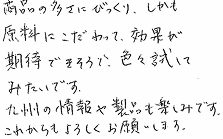 商品の多さにびっくり、しかも
原料にこだわって、効果が
期待できそうで、色々試して
みたいです。
九州の情報や製品も楽しみです。
これからもよろしくお願いします。